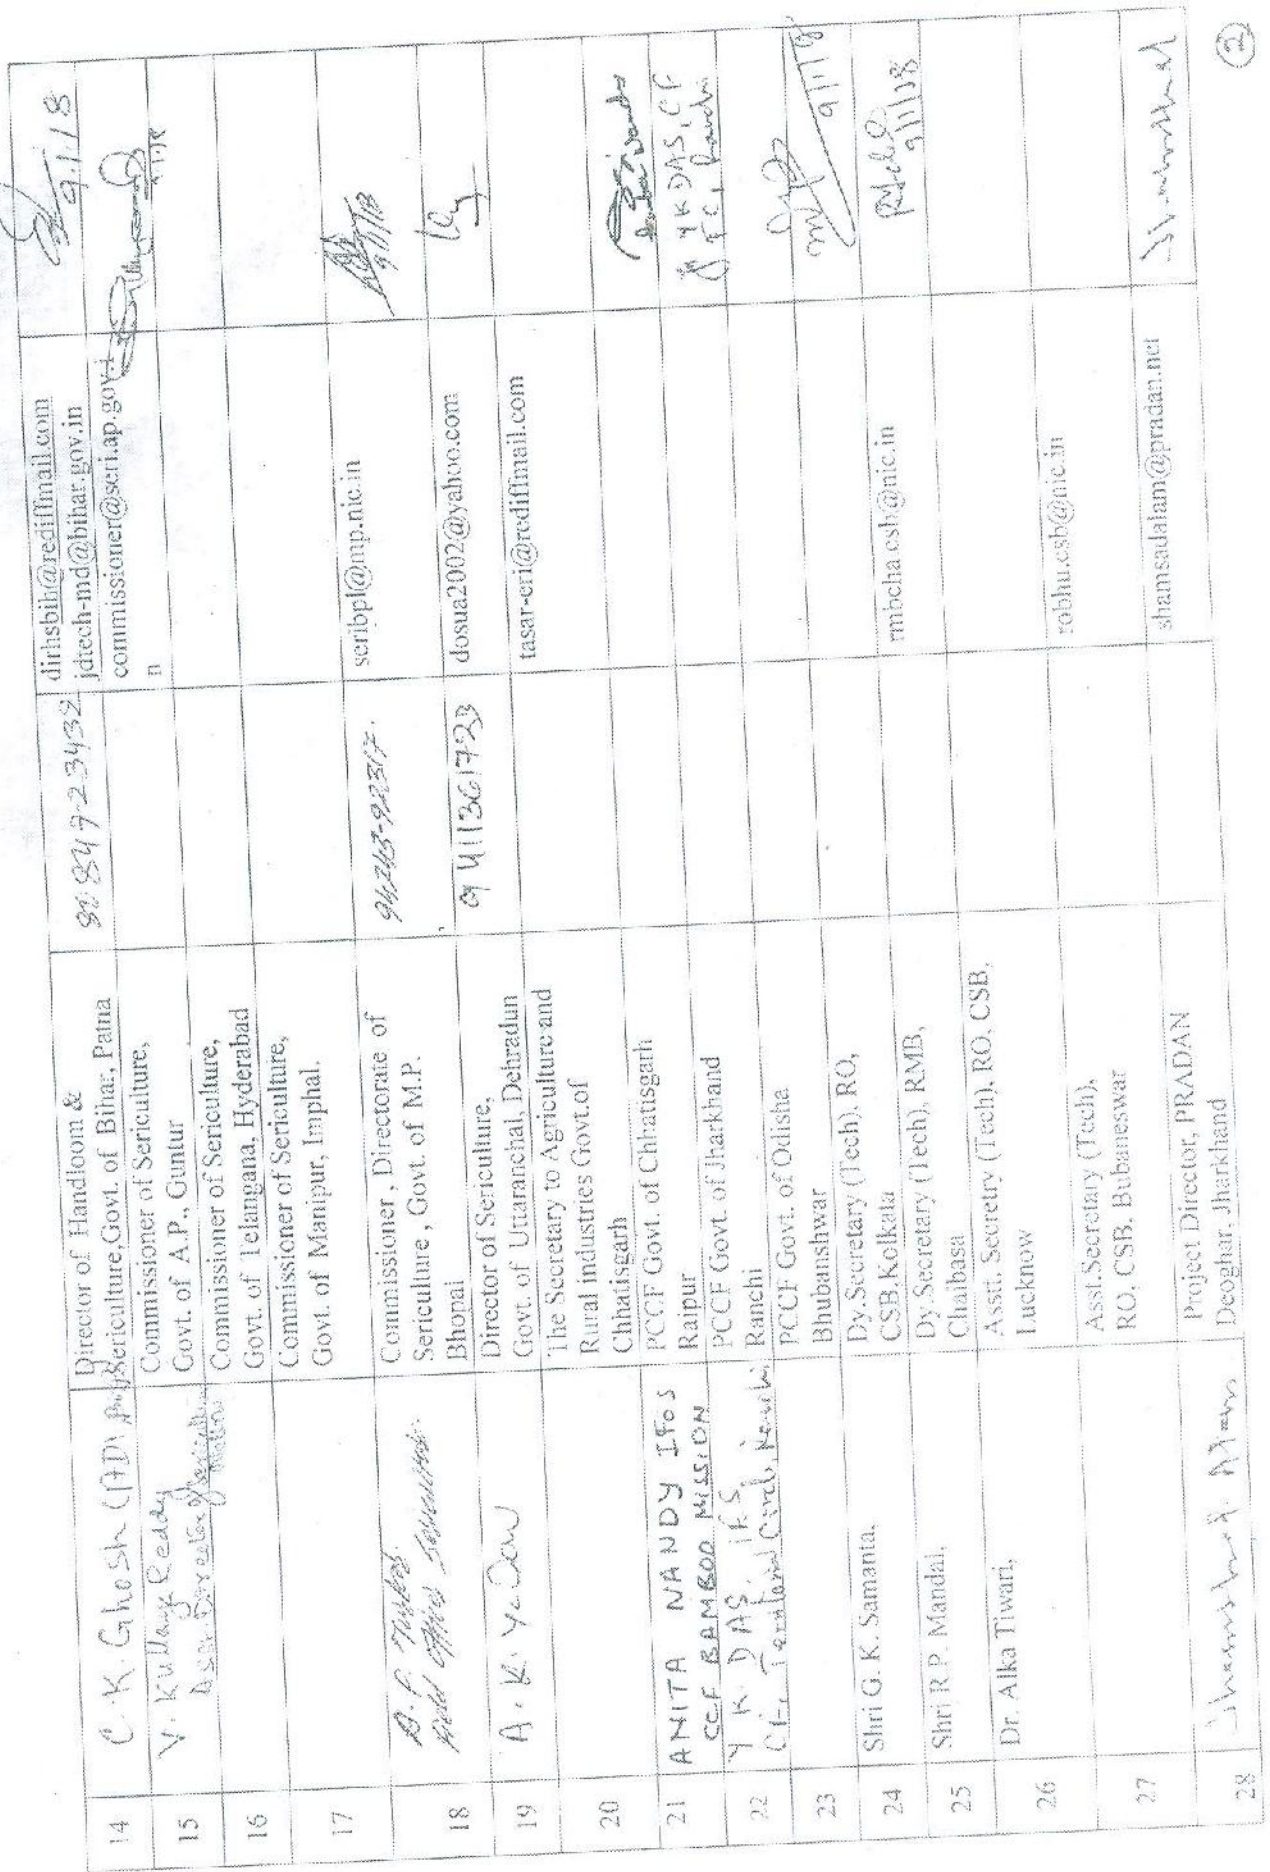 2
14
C. K. Ghosh (AD)
Director of Handloom &
Sericulture,Govt. of Bihar, Patna
dirhsbih@rediffmail.com
jdtech-md@bihar.gov.in
9.1.18
15
V. Kullayi Reddy
Commissioner of Sericulture,
Govt. of A.P., Guntur
commissioner@seri.ap.gov.i
n
16
Commissioner of Sericulture,
Govt. of Telangana, Hyderabad
17
Commissioner of Sericulture,
Govt. of Manipur, Imphal.
18
Commissioner , Directorate of
Sericulture , Govt. of M.P.
Bhopal
94243-92317.
seribpl@mp.nic.in
19
A. K. Yadav
Director of Sericulture,
Govt. of Uttaranchal, Dehradun
9411361723
dosua2002@yahoo.com
20
The Secretary to Agriculture and
Rural industries Govt.of
Chhatisgarh
tasar-eri@rediffmail.com
21
ANITA NANDY IFoS
CCF BAMBOO MISSION
PCCF Govt. of Chhatisgarh
Raipur
22
Y K DAS, IFS
CF, Territorial Circle, Ranchi
PCCF Govt. of Jharkhand
Ranchi
Y K DAS, CF
TC, Ranchi
23
PCCF Govt. of Odisha
Bhubanshwar
9/1/18
24
Shri G. K. Samanta,
Dy.Secretary (Tech), RO,
CSB,Kolkata
9/1/18
25
Shri R.P. Mandal,
Dy.Secretary (Tech), RMB,
Chaibasa
rmbcha.csb@nic.in
26
Dr. Alka Tiwari,
Asst. Secretry (Tech), RO, CSB,
Lucknow
27
Asst.Secretary (Tech),
RO, CSB, Bubaneswar
robhu.csb@nic.in
28
Shamshad Alam
Project Director, PRADAN
Deoghar, Jharkhand
shamsadalam@pradan.net